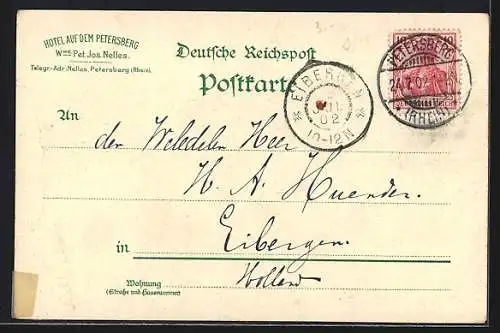 HOTEL AUF DEM PETERSBERG
Wwe Pet. Jos. Nelles.
Telegr.-Adr: Nelles, Petersberg (Rhein).
Deutsche Reichspost
Postkarte
EIBERGEN
JUL
02
10-12N
PETERSBERG
(RHEIN)
An
den Weledelen Heer
H. A. Huender.
in Eibergen.
Holland
Wohnung
(Straße und Hausnummer)